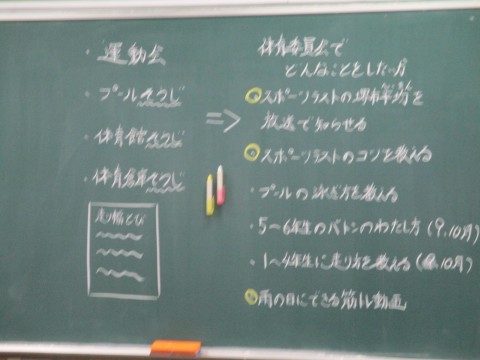 ・運動会
・プールそうじ
・体育館そうじ
・体育倉庫そうじ
走り幅とび
⇒
体育委員会で
どんなことをしたいか
スポーツテストの堺市平均を
放送で知らせる
スポーツテストのコツを教える
・プールの泳ぎ方を教える
・5〜6年生のバトンのわたし方(9,10月)
・1〜4年生に走り方を教える(10月)
雨の日にできる筋トレ動画